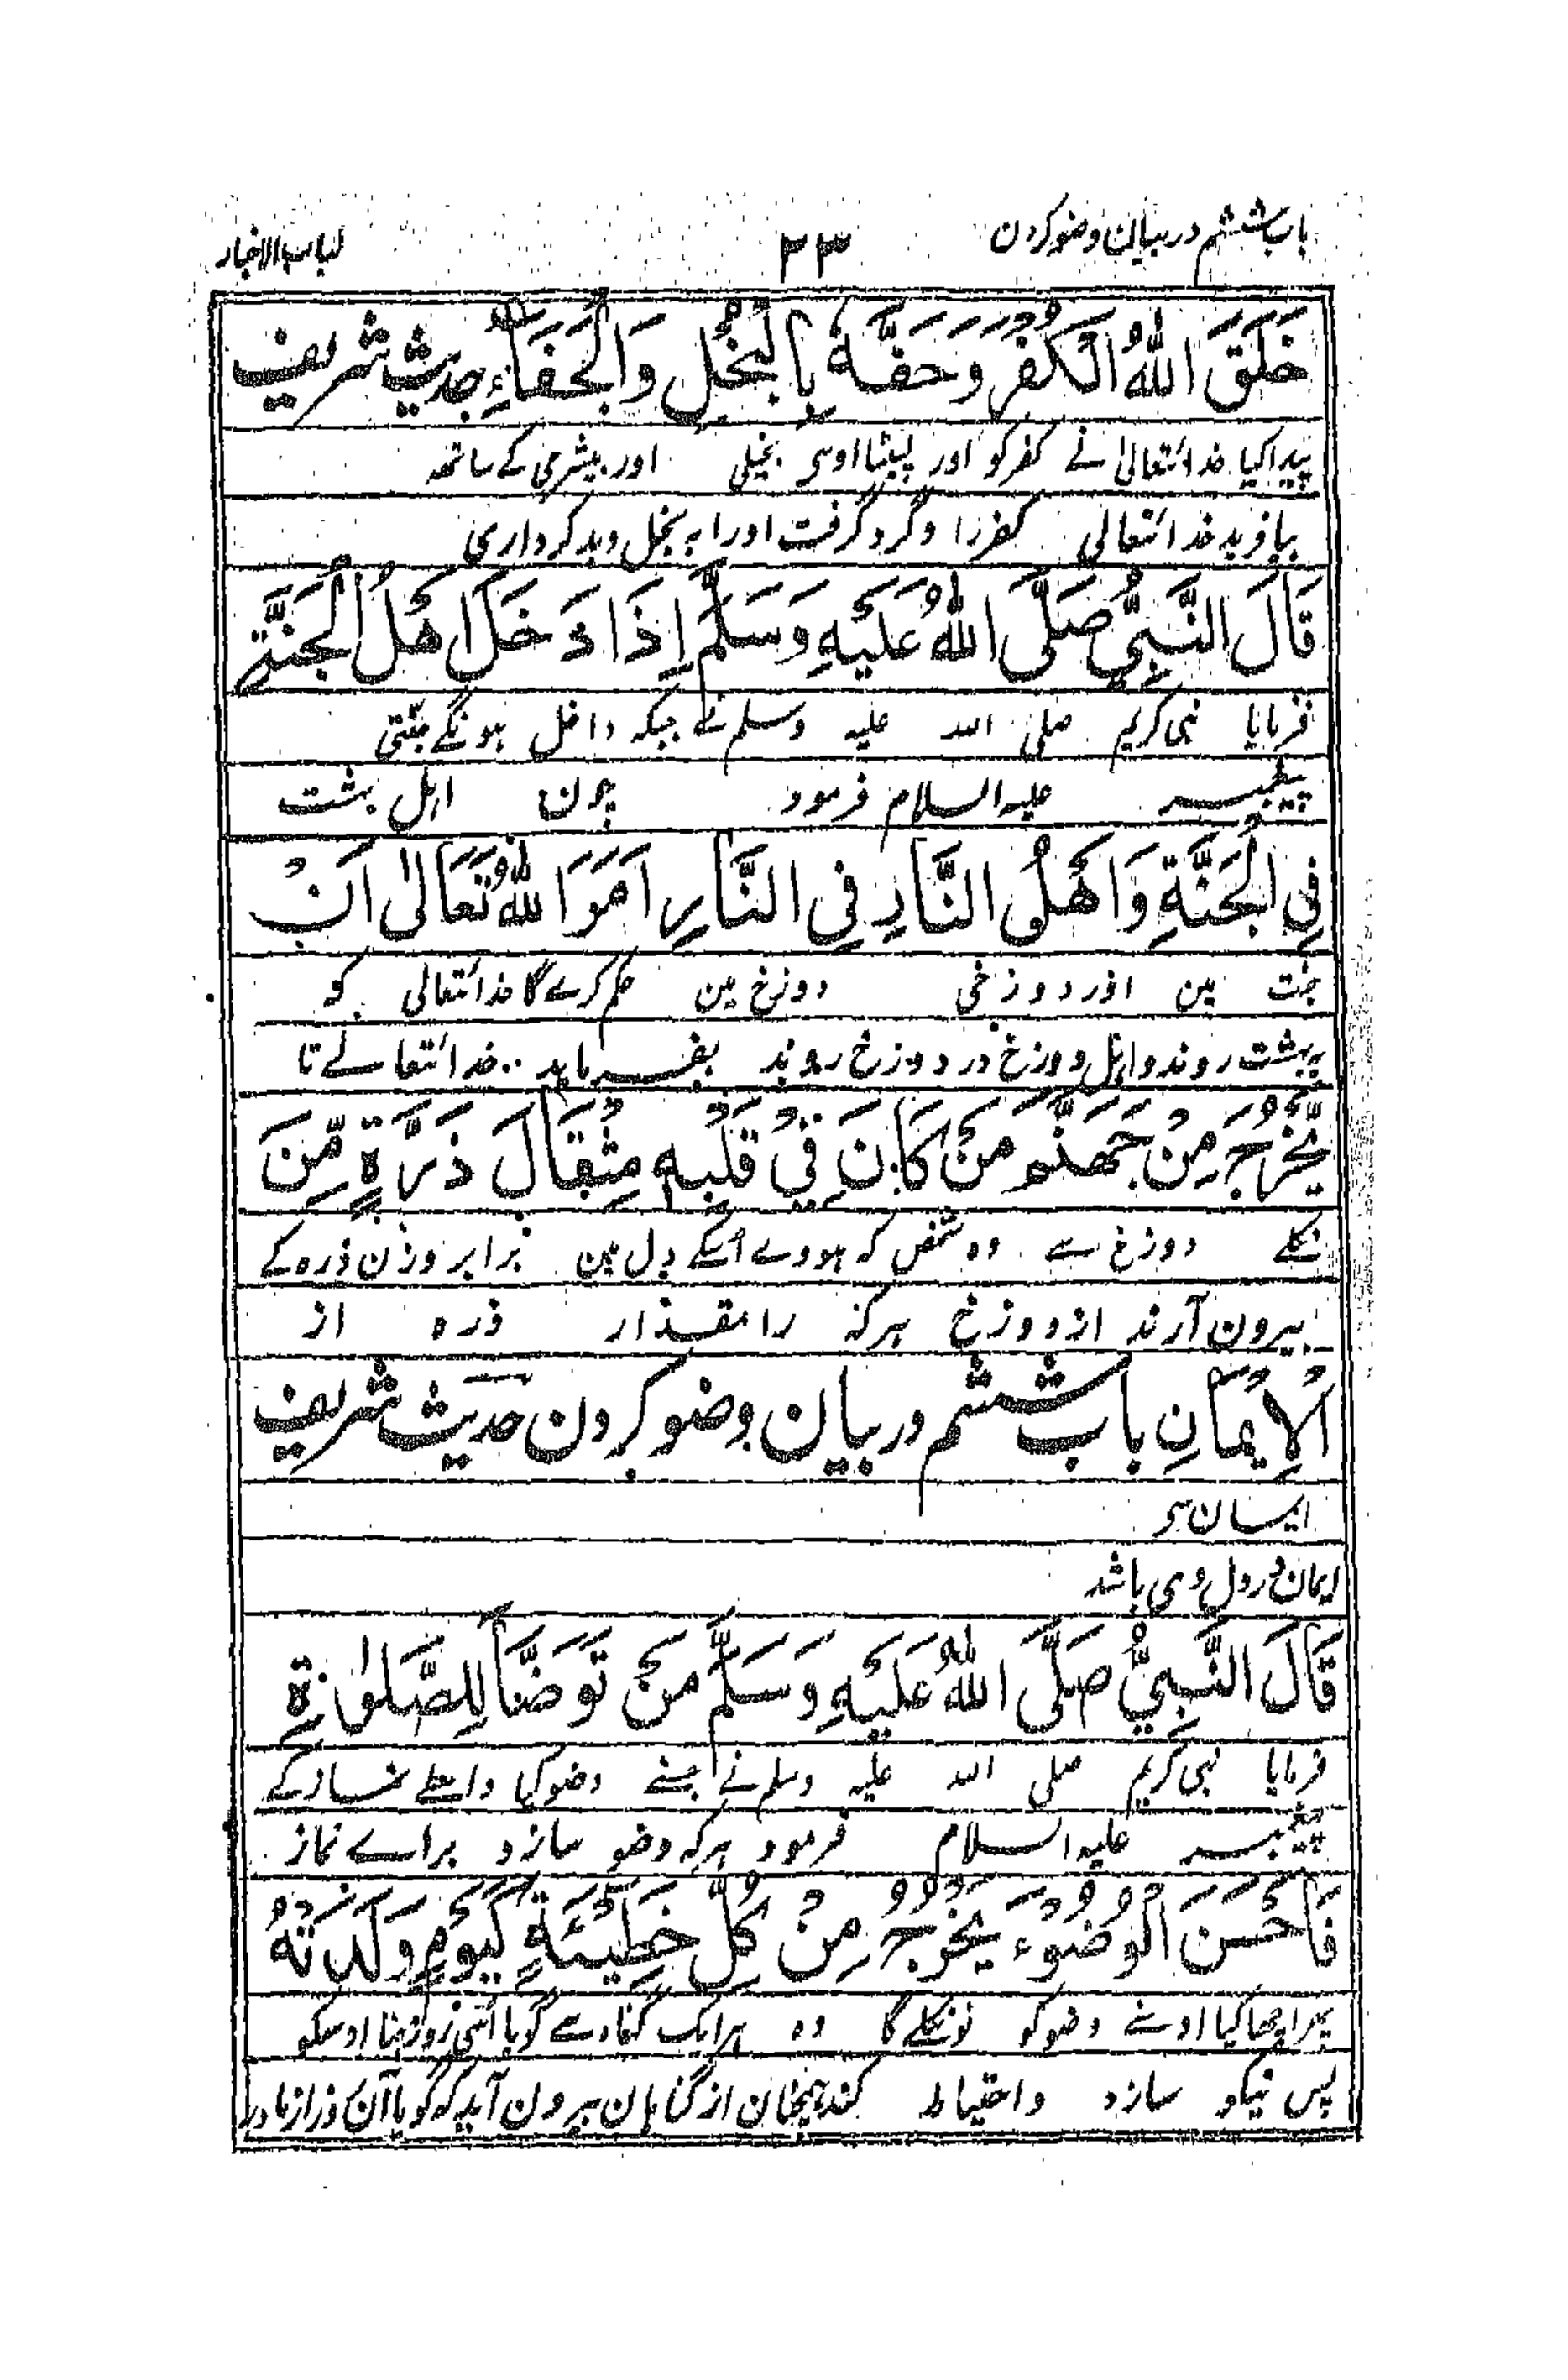 باب ششم در بیان وضو کردن ۲۳ لباب الاخبار
خَلَقَ اللهُ الْكُفْرَ وَحَفَّهٗ بِالْبُخْلِ وَالْجَفَاءِ حدیث شریف
پیدا کیا خدائتعالیٰ نے کفر کو اور لپیٹا اوسی بخیلی اور بیشرمی کے ساتھہ
بیافرید خدائتعالی کفر را و گرد گرفت او را به بخل و بد کرداری
قَالَ النَّبِيُّ صَلَّى اللهُ عَلَيْهِ وَسَلَّمَ اِذَا دَخَلَ اَهْلُ الْجَنَّةِ
فرمایا نبی کریم صلی الله علیه وسلم نے جبکہ داخل ہونگے جنتی
پیغمبر علیه السلام فرمود چون اهل بهشت
فِي الْجَنَّةِ وَاَهْلُ النَّارِ فِي النَّارِ اَمَرَ اللهُ تَعَالٰى اَنْ
جنت مین اور دوزخی دوزخ مین حکم کرے گا خدائتعالی کو
به بهشت روند و اهل دوزخ در دوزخ روند بفرماید خدائتعالے تا
يَّخْرُجَ مِنْ جَهَنَّمَ مَنْ كَانَ فِيْ قَلْبِهٖ مِثْقَالَ ذَرَّةٍ مِّنَ
نکلے دوزخ سے وہ شخص کہ ہووے اُسکے دل مین برابر وزن ذرہ کے
بیرون آرند از دوزخ هرکه را مقدار ذره از
الْاِيْمَانِ باب ششم در بیان وضو کردن حدیث شریف
ایمان ہو
ایمان در دل وی باشد
قَالَ النَّبِيُّ صَلَّى اللهُ عَلَيْهِ وَسَلَّمَ مَنْ تَوَضَّأَ لِلصَّلٰوةِ
فرمایا نبی کریم صلی الله علیه وسلم نے جسنے وضو کیا واسطے نماز کے
پیغمبر علیه السلام فرمود هرکه وضو سازد براے نماز
فَاَحْسَنَ الْوُضُوْءَ يَخْرُجُ مِنْ كُلِّ خَطِيْئَةٍ كَيَوْمٍ وَلَدَتْهُ
پھر اچھا کیا اوسنے وضو کو تو نکلے گا وہ ہر ایک گناہ سے گویا اُسی روز جنا اوسکو
پس نیکو سازد و احتیاط کند همچنان از گناهان بیرون آید که گویا آن روز از مادر